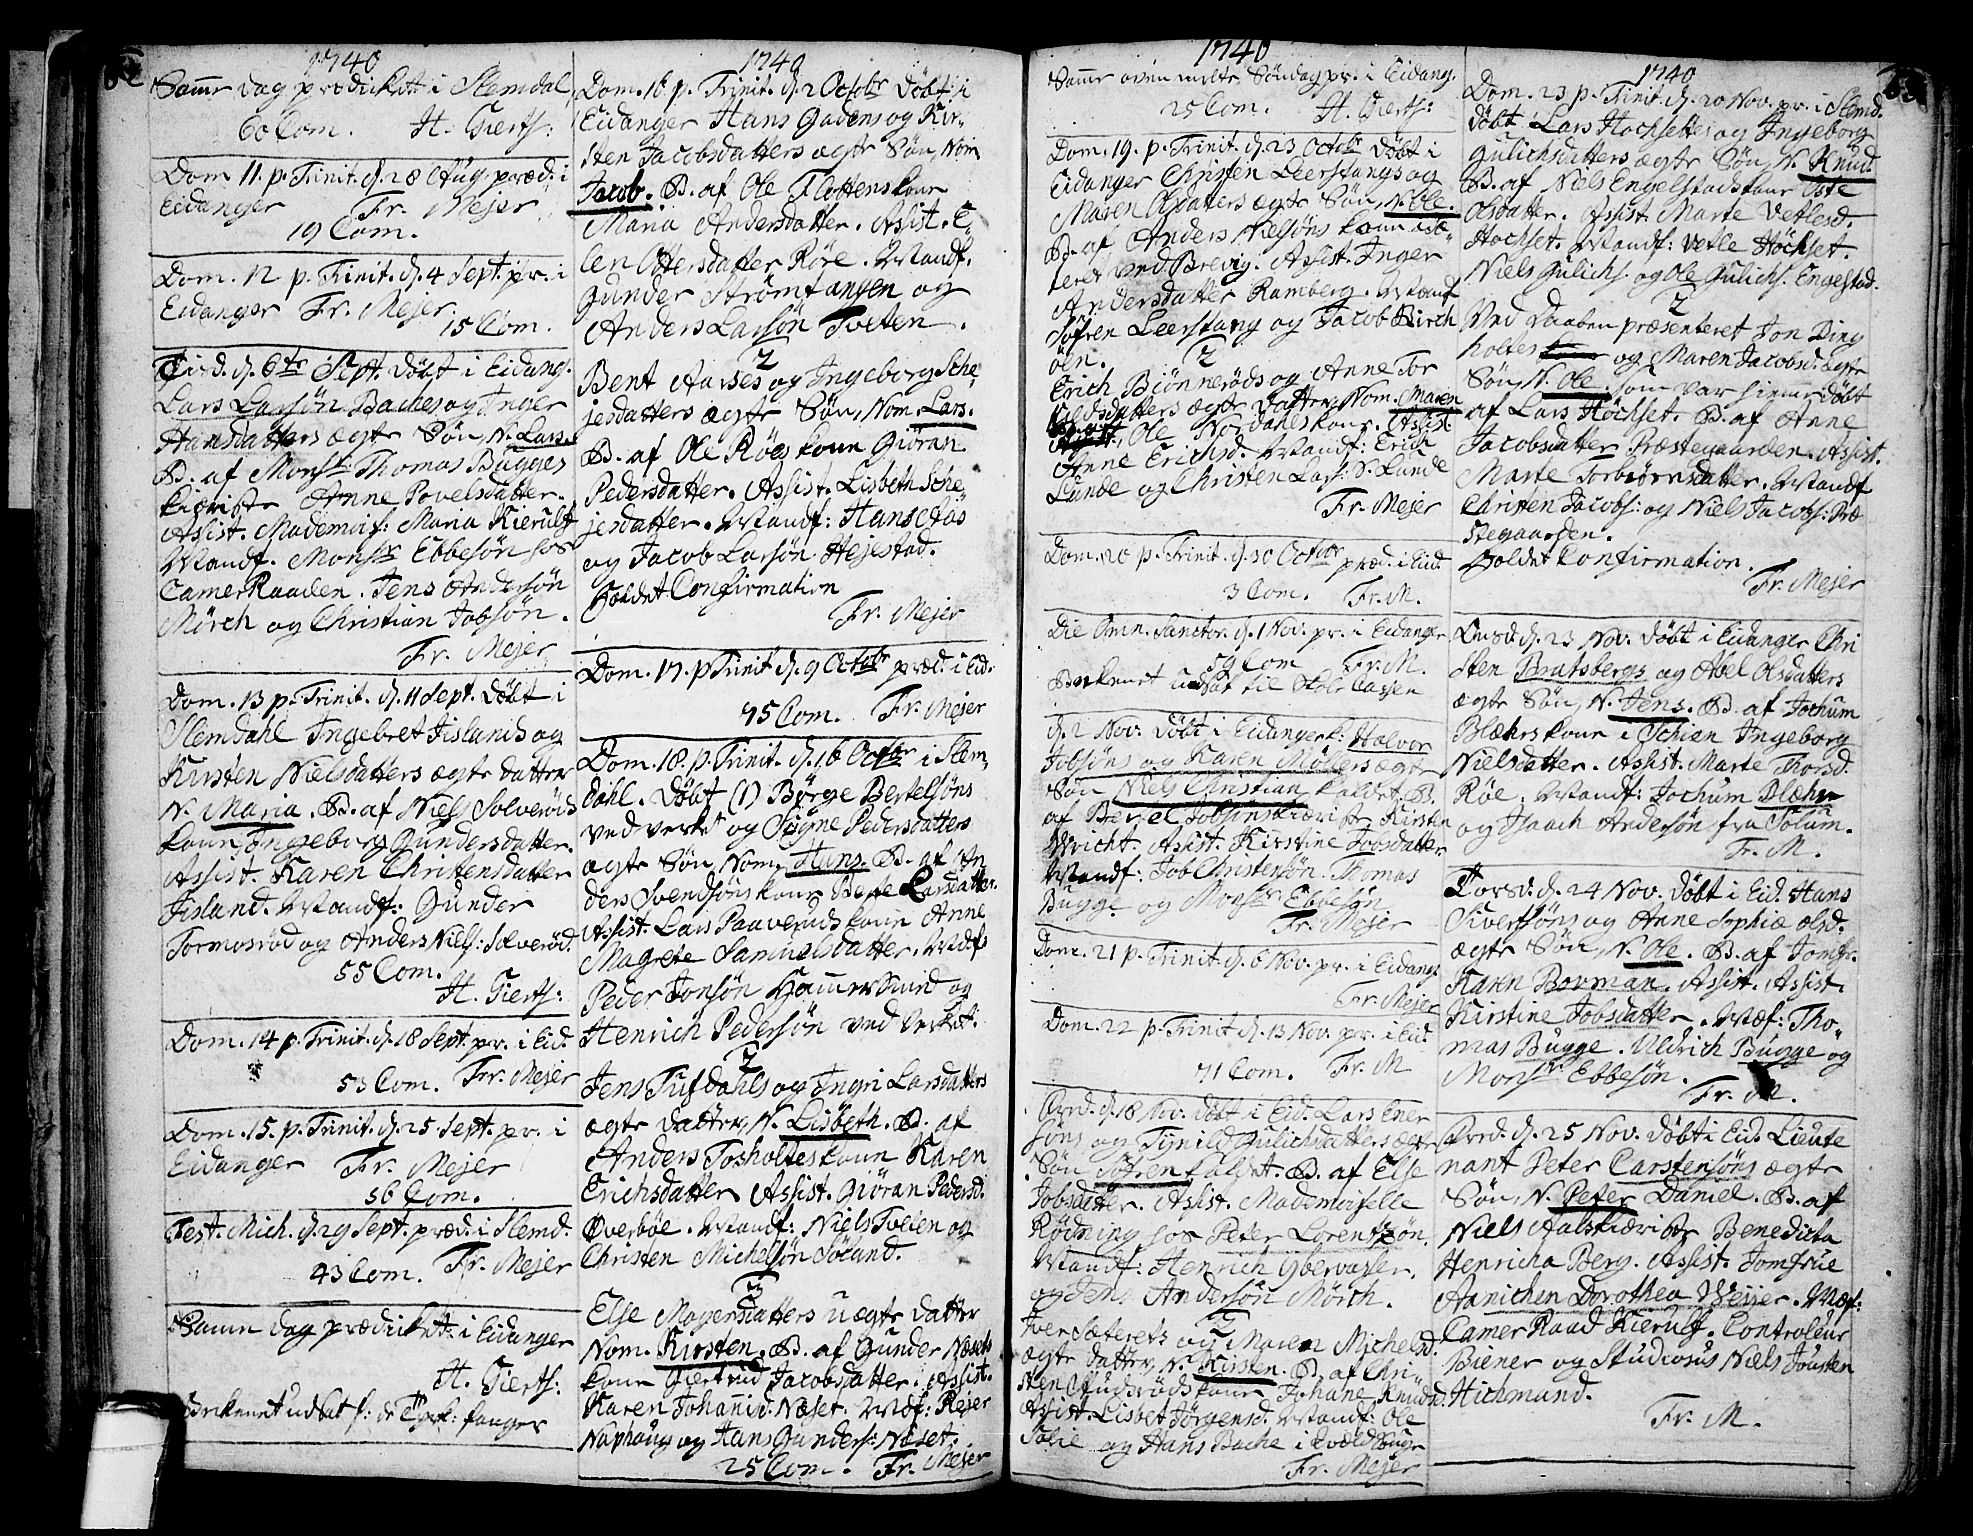 1740
Samme dag prædicket i Slemdal
60 Com. H. Gierts:
Dom. 11. p. Trinit. d. 28 Aug. præd. i
Eidanger Fr. Mejer
19 Com.
Dom. 12 p. Trinit. d. 4 Sept. pr. i
Eidanger Fr. Mejer.
15 Com.
Tisd. d. 6te Sept. döbt i Eidang.
Lars Larsön Baches og Inger
Hansdatters ægte Sön, N. Lars.
B. af Monsr. Thomas Bugges
Anne Povelsdatter.
Assist. Mademois: Maria Kierulf
Vandf. Monsr. Ebbesön hos
CamerRaaden. Jens Andersön
Mörch og Christian Jobsön.
Fr. Mejer
Dom. 13 p. Trinit. d. 11 Sept. döbt i
Slemdahl Ingebret Jislands og
Kirsten Nielsdatters ægte datter
N. Maria. B. af Niels Solveröds
kone Ingeborg Gundersdatter.
Assist. Karen Christensdatter
Jisland. Vandf: Gunder
Tormosröd og Anders Niels: Solveröd.
55 Com.
H. Gierts:
Dom. 14 p. Trinit. d. 18 Sept. pr. i Eid.
53 Com. Fr. Mejer
Dom. 15. p. Trinit. d. 25 Sept. pr. i
Eidanger Fr. Mejer
56 Com.
Fest. Mich. d. 29 Sept. præd. i Slemd.
43 Com. Fr. Mejer
Samme dag prædicket i Eidanger
H. Gierts:
Bækkenet udsat f: de fanger
1740
Dom. 16. p. Trinit. d. 2 Octobr döbt i
Eidanger Hans Gadens og Kir-
sten Jacobsdatters ægte Sön, Nom
Jacob. B. af Ole Flottens kone
Maria Andersdatter. Assist. E-
len Ottersdatter Röre. Vandf.
Gunder Strömtangen og
Anders Larsön Tveten.
2
Bent Aarses og Ingeborg Sche-
jesdatters ægte Sön, Nom. Lars.
B. af Ole Röes kone Giöran
Pedersdatter. Assist. Lisbeth Sche
jesdatter. Vandf: Hans Aas
og Jacob Larsön Hejestad.
Holdet Confirmation
Fr. Mejer
Dom. 17. p Trinit d. 9 Octobr præd. i Eid.
75 Com. Fr. Mejer
Dom. 18. p. Trinit. d. 16 Octobr i Slem-
dahl. Döbt (1) Börge Bertelsöns
ved verket og Signe Pedersdatters
ægte Sön, Nom. Hans. B. af An
ders Svendsöns kone Berte Larsdatter.
Assist. Lars Paaveruds kone Anne
Magrete Samuelsdatter. Vdf:
Peder Jonsön Hammersmed og
Henrich Pedersön ved verket.
2
Jens Tufdahls og Ingri Larsdatters
ægte datter, N. Lisbeth. B. af
Anders Tosholtes kone Karen
Erichsdatter Assist. Giöran Pedersd.
Överböe. Vandf: Niels Tveten og
Christen Michelsön Söland.
3
Else Mogensdatters uægte datter
Nom. Kirsten. B. af Gunder Næsets
kone Giertrud Jacobsdatter. Assist.
Karen Johannisd. Næset. Vdf: Rejer
Naphaug og Hans Gunders: Næset.
25 Com. Fr. Mejer
1740
Samme oven melte Söndag pr. i Eidang.
25 Com. H. Gierts:
Dom. 19. p. Trinit. d. 23 Octobr döbt i
Eidanger Christen Leerstangs og
Maren Olsdatters ægte Sön, N. Ole.
B. af Anders Nielsöns kone
ved Brevig. Assist. Inger
Andersdatter Ramberg. Vandf
Söfren Leerstang og Jacob Birch
ölen. 2
Erich Biönneröds og Anne Tor
kildsdatters ægte datter, Nom. Maren
Ole Nordahls kone. Assist
Anne Erichsd. Vandf: Erich
Lunde og Christen Lars: S. Lunde
Fr. Mejer
Dom. 20 p. Trinit. d. 30 Octobr præd. i Eid.
3 Com. Fr. M.
Die Omn. Sanctor. d. 1 Nov. pr. i Eidanger
59 Com Fr. M.
Bækkenet udsat til Skole Cassen
d. 2 Nov. döbt i Eidanger k: Halvor
Jobsöns og Karen Möllers ægte
Sön Niels Christian kaldet. B.
af Bertel Jobsöns Kirsten
Wricht. Assist. Kirstine Jobsdatter
Vandf: Job Christensön. Thomas
Bugge og Monsr. Ebbesön
Fr. Mejer
Dom. 21 p. Trinit. d. 6 Nov. pr. i Eidang:
Fr. Mejer
Dom. 22 p. Trinit. d. 13 Nov. pr. i Eid.
71 Com. Fr. M
Fred. d. 18 Nov. döbt i Eid. Lars Ener
söns og Gulichsdatters ægte
Sön Söfren kaldet. B. af Else
Jobsdatter. Assist. Mademoiselle
Rödning hos Peter Lorentzön.
Vandf: Henrich
og Jens Andersön Mörch.
2
Iver Sæterets og Maren Michelsd.
ægte datter, N. Kirsten. B. af Chri-
sten kone Johane Knudsd.
Assist. Lisbet Jörgensd. Vandf: Ole
Solie og Hans Bache i
Fr. Mejer
1740
Dom. 23 p. Trinit. d. 20 Nov. pr. i Slemd.
döbt Lars Hochsettes og Ingeborg
Gulichsdatters ægte Sön, N. Knud.
B. af Niels Engelstads kone
Olsdatter. Assist. Marte Vetlesd.
Hochset. Vandf: Vetle Höchset.
Niels Gulichs. og Ole Gulichs. Engelstad.
2
Ved Daaben præsenteret Jon Ding
holtes og Maren Jacobsd. ægte
Sön, N. Ole. som var hiemme döbt
af Lars Höchset. B. af Anne
Jacobsdatter Præstegaarden. Assist.
Marte Torbiörnsdatter. Vandf
Christen Jacobs: og Niels Jacobs: Præ
stegaarden.
Holdet Confirmation.
Fr. Mejer
Onsd. d. 23 Nov. döbt i Eidanger Chri
sten Bratsbergs og Abel Olsdatters
ægte Sön, N. Jens. B. af Jochum
Blæhrs kone i Schien Ingeborg
Nielsdatter. Assist. Marte Thorsd.
Röe. Vandf: Jochum Blæhr
og Isaach Andersön fra Solum.
Fr. M.
Torsd. d. 24 Nov. döbt i Eid. Hans
Sivertsöns og Anne Sophia Olsd.
ægte Sön, N. Ole. B. af Jomfr.
Karen Borman. Assist. Assist.
Kirstine Jobsdatter. Væf: Tho-
mas Bugge. Uldrich Bugge og
Monsr. Ebbesön.
Fr. M.
Fred. d. 25 Nov. döbt i Eid. Lieute
nant Peter Carstensöns ægte
Sön, N. Peter Daniel. B. af
Niels Aals Benedicta
Henricha Berg. Assist. Jomfrue
Aanichen Dorothea Weijer. Væf:
Camer Raad Kierulf. Controleur
Biener og Studiosus Niels Jousten
Hichmund.
Fr. M.